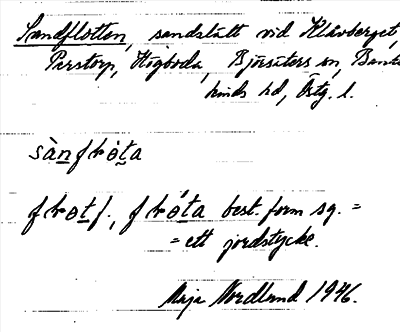 Sandflotten, sandslätt vid Klåvberget,
Perstorp, Högboda, Björsäters sn, Bankе
kinds hd, Östg. l.
sànfɽòta
fɽot f., fɽota best. form sg. =
= ett jordstycke.
Maja Nordlund 1946.